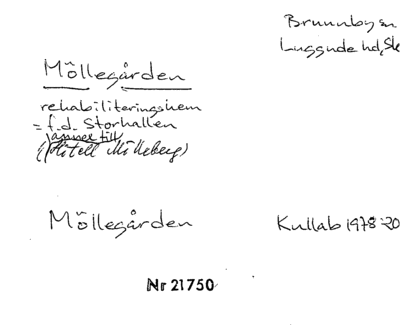 Brunnby sn
Luggude hd, Sk
Möllegården
rehabiliteringshem
= f.d. Storhallen
annex till
(Hotell Mölleberg)
Möllegården
Kullab 1978:20
Nr 21750